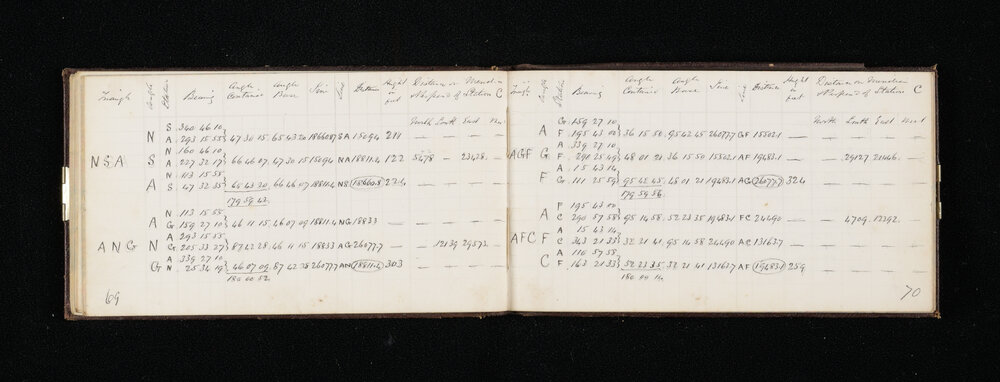 Triangle Angle Station Bearing Angle Contained Angle Base Sine Line Distance Height in feet Distance on Meridian & Perpend of Station C
North South East West
S 340 46 10
N A 293 15 55 47 30 15 65 43 20 18660.7 SA 15094 211 — — — —
N 160 46 10
NSA S A 227 32 17 66 46 07 47 30 15 15094 NA 18811.4 122 5478 — 23428 —
N 113 15 55
A S 47 32 35 65 43 20 66 46 07 18811.4 NS 18660.8 224 — — — —
179 59 42
N 113 15 55
A G 159 27 10 46 11 15 46 07 09 18811.4 NG 18833 — — — —
A 293 15 55
ANG N G 205 33 27 87 42 28 46 11 15 18833 AG 26077.7 — — 12139 29573 —
A 339 27 10
G N 25 34 19 46 07 09 87 42 28 26077.7 AN 18811.4 303 — — — —
180 00 52
69
Triangle Angle Station Bearing Angle Contained Angle Base Sine Line Distance Height in feet Distance on Meridian & Perpend of Station C
North South East West
G 159 27 10
A F 195 43 00 36 15 50 95 42 45 26077.7 GF 15502.1 — — — —
A 339 27 10
AGF G F 291 25 49 48 01 21 36 15 50 15502.1 AF 19483.1 — — 29127 21446 —
A 15 43 14
F G 111 25 59 95 42 45 48 01 21 19483.1 AG 26077.7 324 — — — —
179 59 56
F 195 43 00
A C 290 57 58 95 14 58 52 23 35 19483.1 FC 24490 — — 4709 12392 —
A 15 43 14
AFC F C 343 21 33 32 21 41 95 14 58 24490 AC 13163.7 — — — —
A 110 57 58
C F 163 21 33 52 23 35 32 21 41 13163.7 AF 19483.1 259 — — — —
180 00 14
70